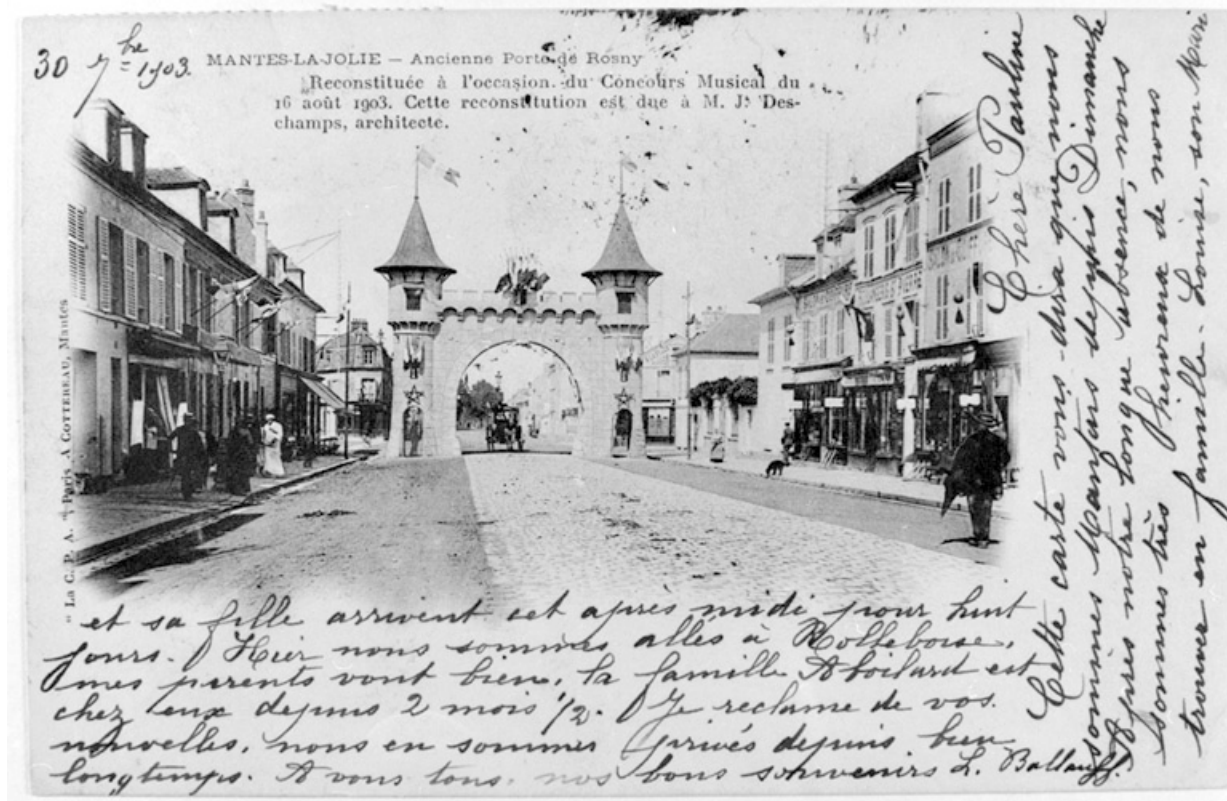 30 7bre 1903.
MANTES-LA-JOLIE — Ancienne Porte de Rosny
Reconstituée à l'occasion du Concours Musical du
16 août 1903. Cette reconstitution est due à M. J. Des-
champs, architecte.
" La C. P. A. " Paris A COTTEREAU, Mantes
Chère Pauline
Cette carte vous dira que nous
sommes Mantais depuis Dimanche
Après notre longue absence, nous
sommes très heureux de nous
trouver en famille. Louise, son Mari
et sa fille arrivent cet après midi pour huit
jours. Hier nous sommes allés à Rolleboise.
mes parents vont bien, la famille Aboilard est
chez eux depuis 2 mois 1/2. Je réclame de vos
nouvelles, nous en sommes privés depuis bien
longtemps. A vous tous, nos bons souvenirs L.